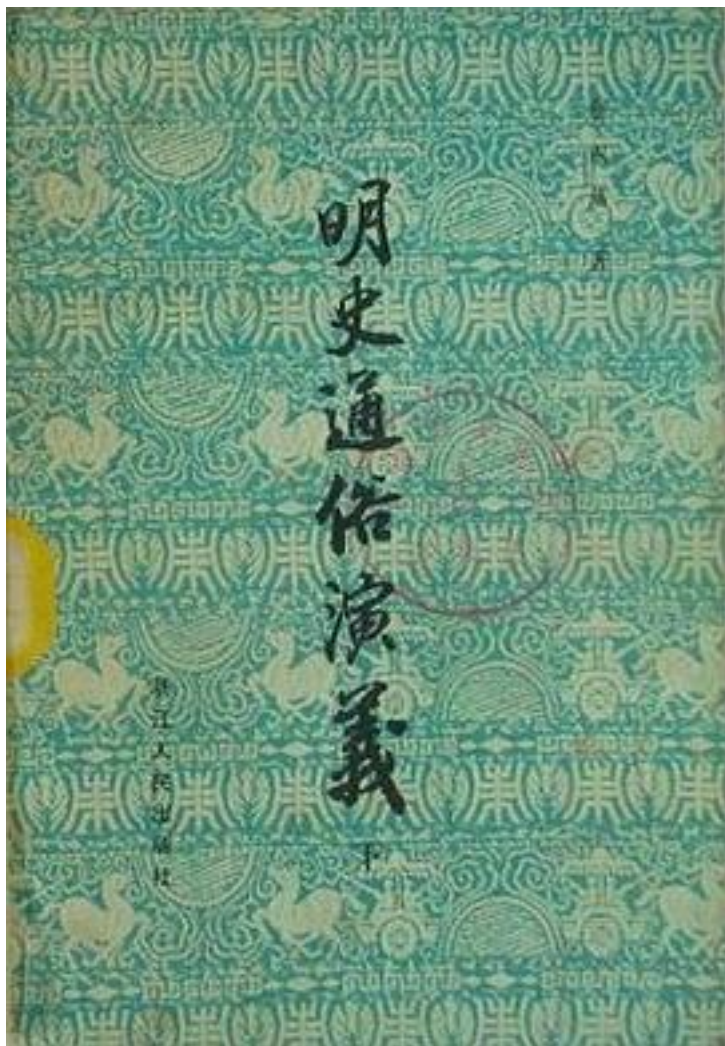 蔡东藩 著
明史通俗演義
下
浙江人民出版社